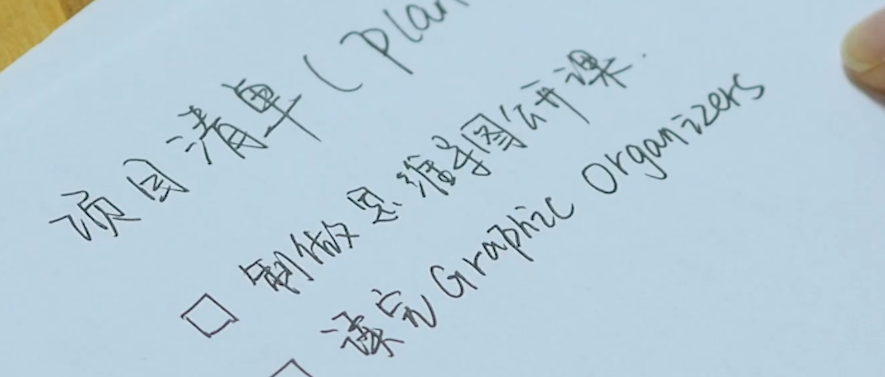 项目清单(plan
制做思维导图讲课.
读完Graphic Organizers